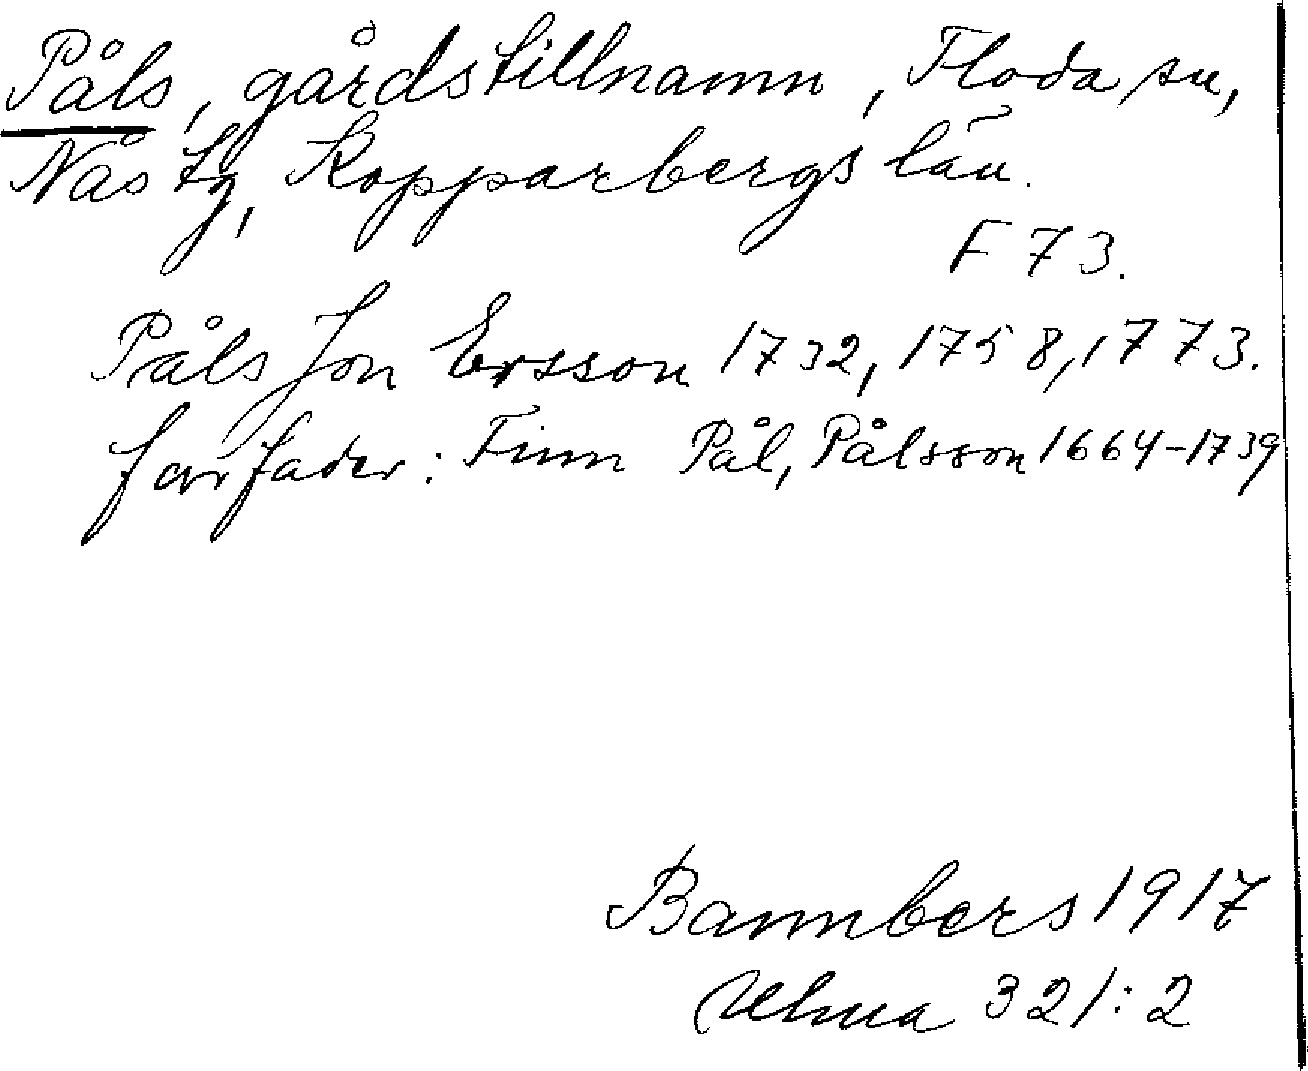 Påls, gårdstillnamn, Floda sn,
Nås tg, Kopparbergs län.
F 73.
Påls Jon Ersson 1732, 1758, 1773.
farfader: Finn Pål, Pålsson 1664-1739
Bannbers 1917
Ulma 321:2